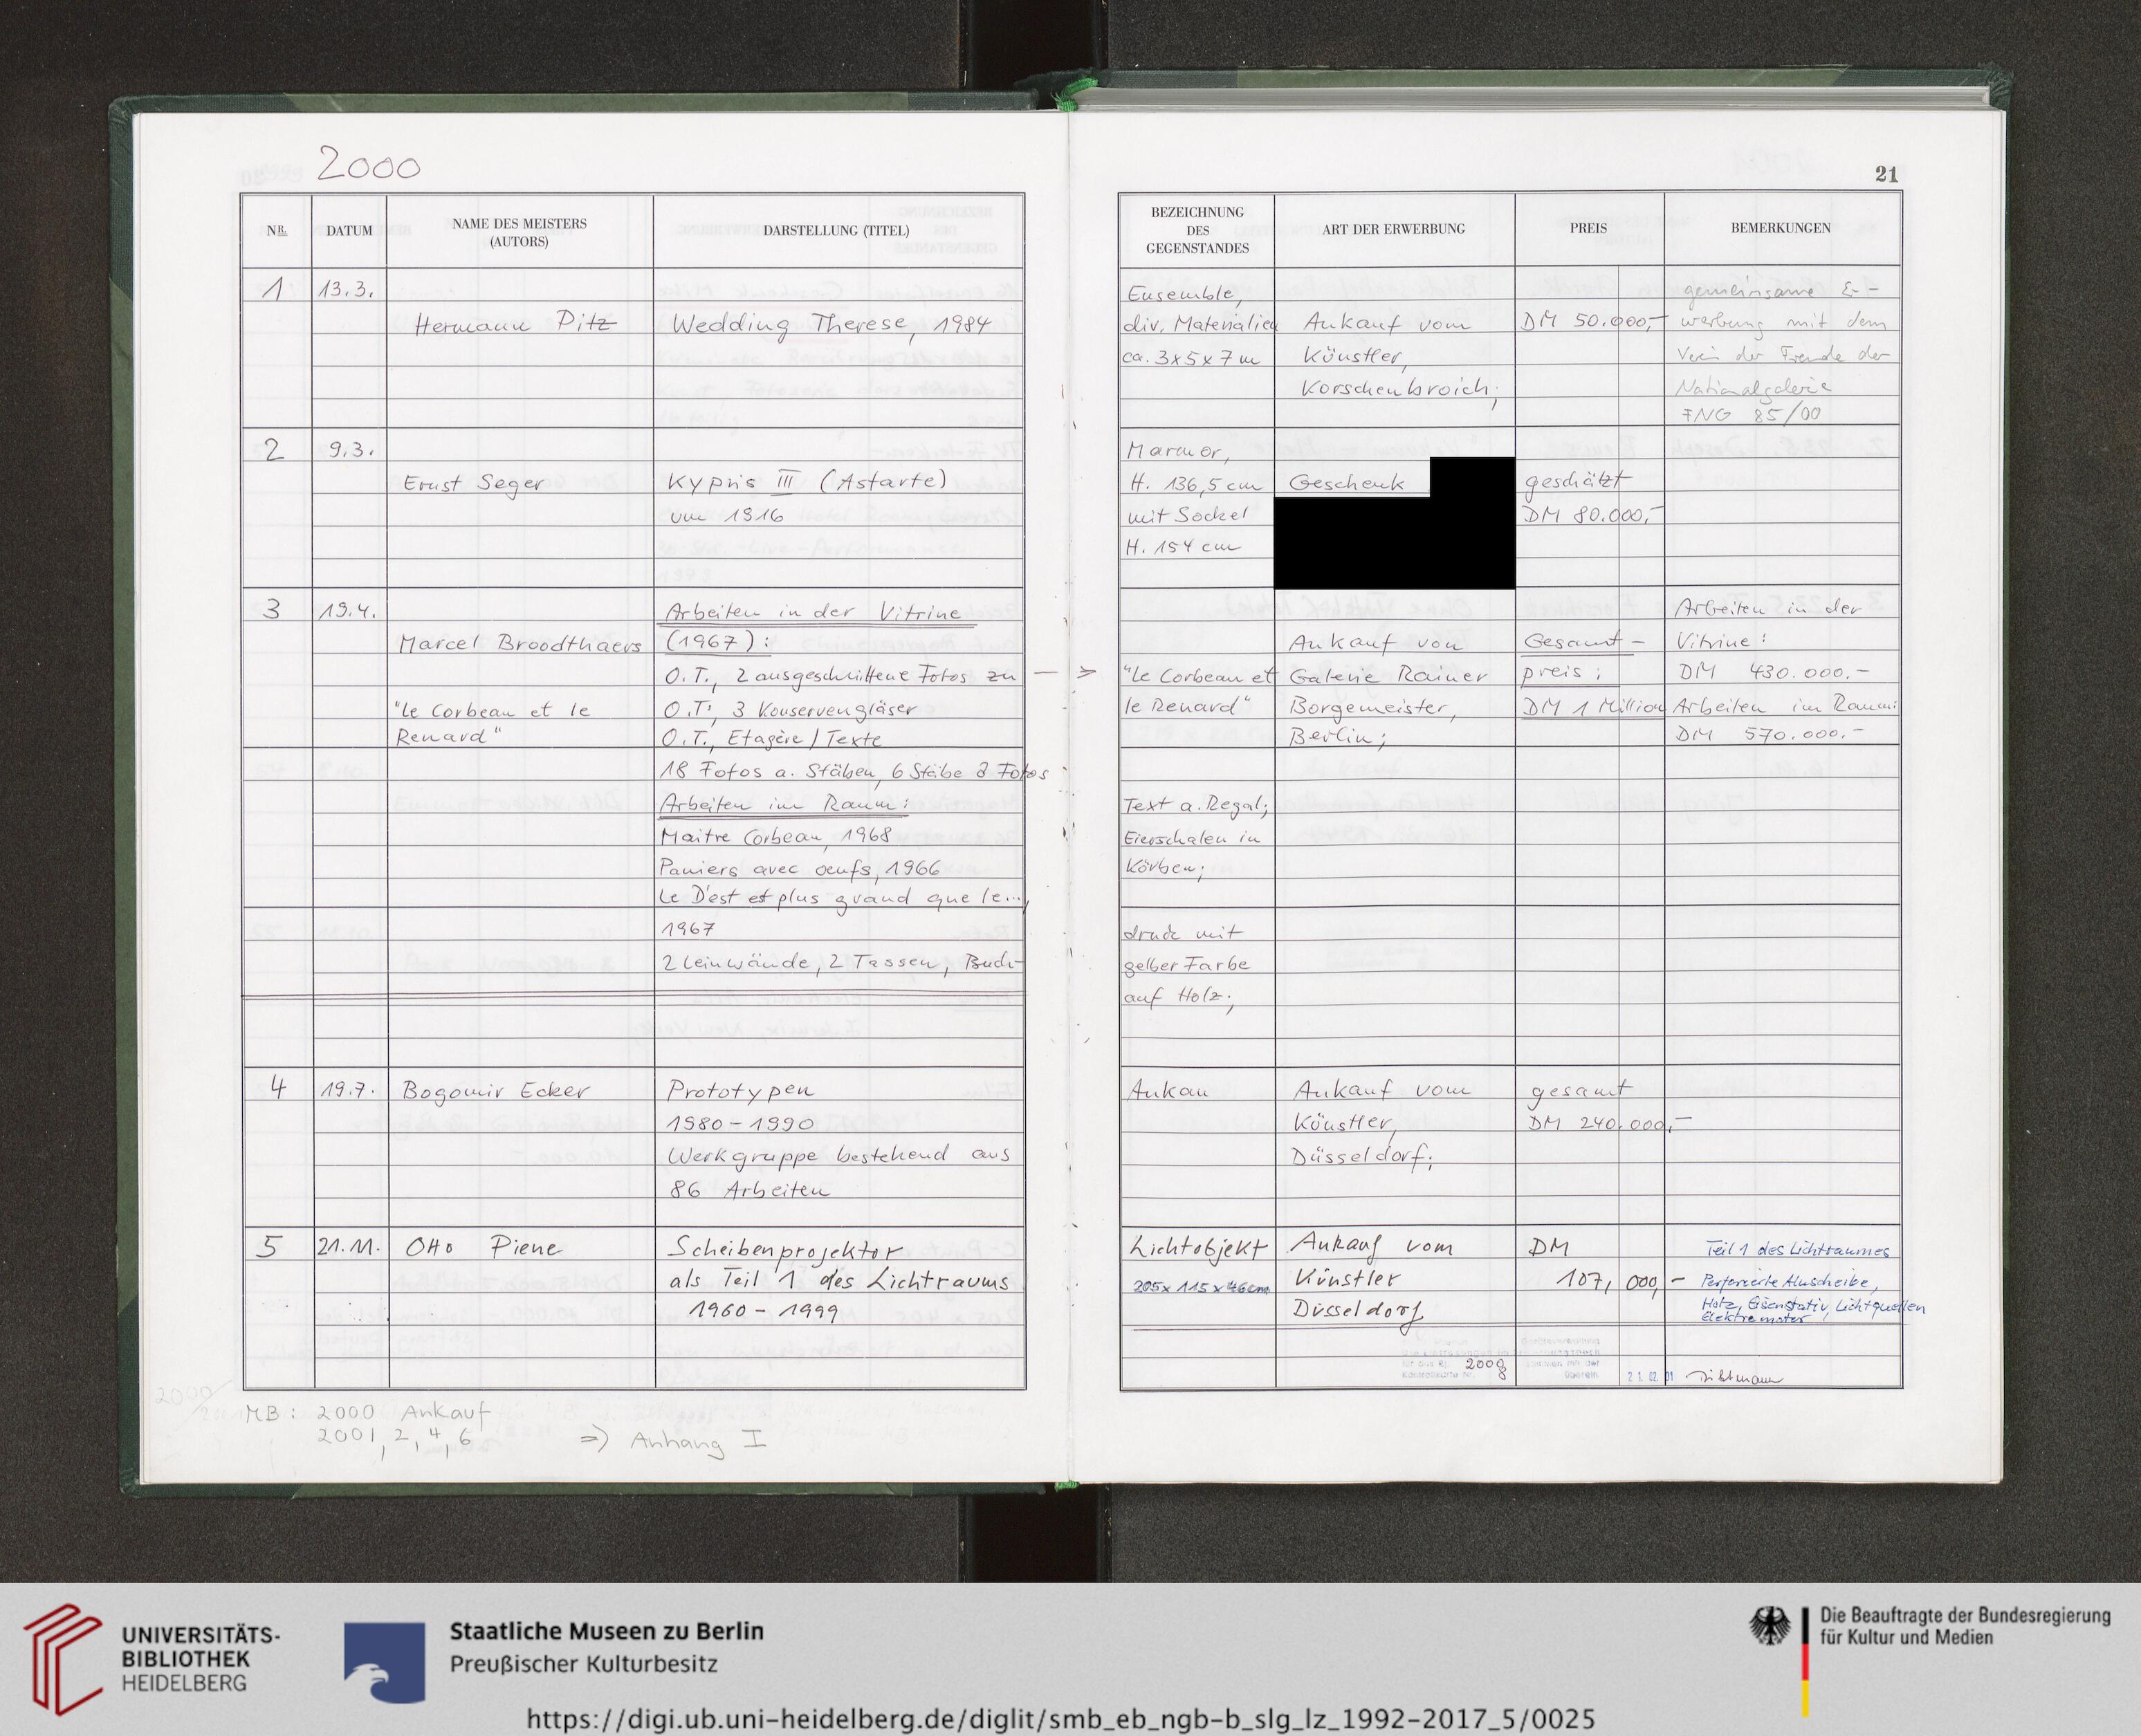 2000
21
NR.
DATUM
NAME DES MEISTERS
(AUTORS)
DARSTELLUNG (TITEL)
BEZEICHNUNG
DES
GEGENSTANDES
ART DER ERWERBUNG
PREIS
BEMERKUNGEN
1 13.3.
Hermann Pitz
Wedding Therese, 1984
Ensemble,
div. Materialien
ca. 3x5x7m
Ankauf vom
Künstler,
Korschenbroich;
DM 50.000,-
gemeinsame Er-
werbung mit dem
Verein der Freunde der
Nationalgalerie
FNG 85/00
2 9.3.
Ernst Seger
Kypris III (Astarte)
um 1916
Marmor,
H. 136,5 cm
mit Sockel
H. 154 cm
Geschenk
geschätzt
DM 80.000,-
3 19.4.
Marcel Broodthaers
"Le Corbeau et le
Renard"
Arbeiten in der Vitrine
(1967):
O.T., 2 ausgeschnittene Fotos zu
O.T., 3 Konservengläser
O.T., Etagère / Texte
18 Fotos a. Stäben, 6 Stäbe 8 Fotos
Arbeiten im Raum:
Maitre Corbeau, 1968
Paniers avec oeufs, 1966
Le D'est et plus grand que le...,
1967
2 Leinwände, 2 Tassen, Buch-
"Le Corbeau et
le Renard"
Text a. Regal;
Eierschalen in
Körben;
druck mit
gelber Farbe
auf Holz;
Ankauf von
Galerie Rainer
Borgemeister,
Berlin;
Gesamt-
preis:
DM 1 Million
Arbeiten in der
Vitrine:
DM 430.000.-
Arbeiten im Raum:
DM 570.000.-
4 19.7. Bogomir Ecker
Prototypen
1980-1990
Werkgruppe bestehend aus
86 Arbeiten
Ankau
Ankauf vom
Künstler,
Düsseldorf;
gesamt
DM 240.000,-
5 21.11. Otto Piene
Scheibenprojektor
als Teil 1 des Lichtraums
1960-1999
Lichtobjekt
205x115x46cm
Ankauf vom
Künstler
Düsseldorf
DM
107,000,-
Teil 1 des Lichtraumes
Perforierte Aluscheibe,
Holz, Eisenstativ, Lichtquellen
Elektromotor
2000
8
21. 02. 01
MB: 2000 Ankauf
2001, 2, 4, 6 => Anhang I
UNIVERSITÄTS-
BIBLIOTHEK
HEIDELBERG
Staatliche Museen zu Berlin
Preußischer Kulturbesitz
Die Beauftragte der Bundesregierung
für Kultur und Medien
https://digi.ub.uni-heidelberg.de/diglit/smb_eb_ngb-b_slg_lz_1992-2017_5/0025